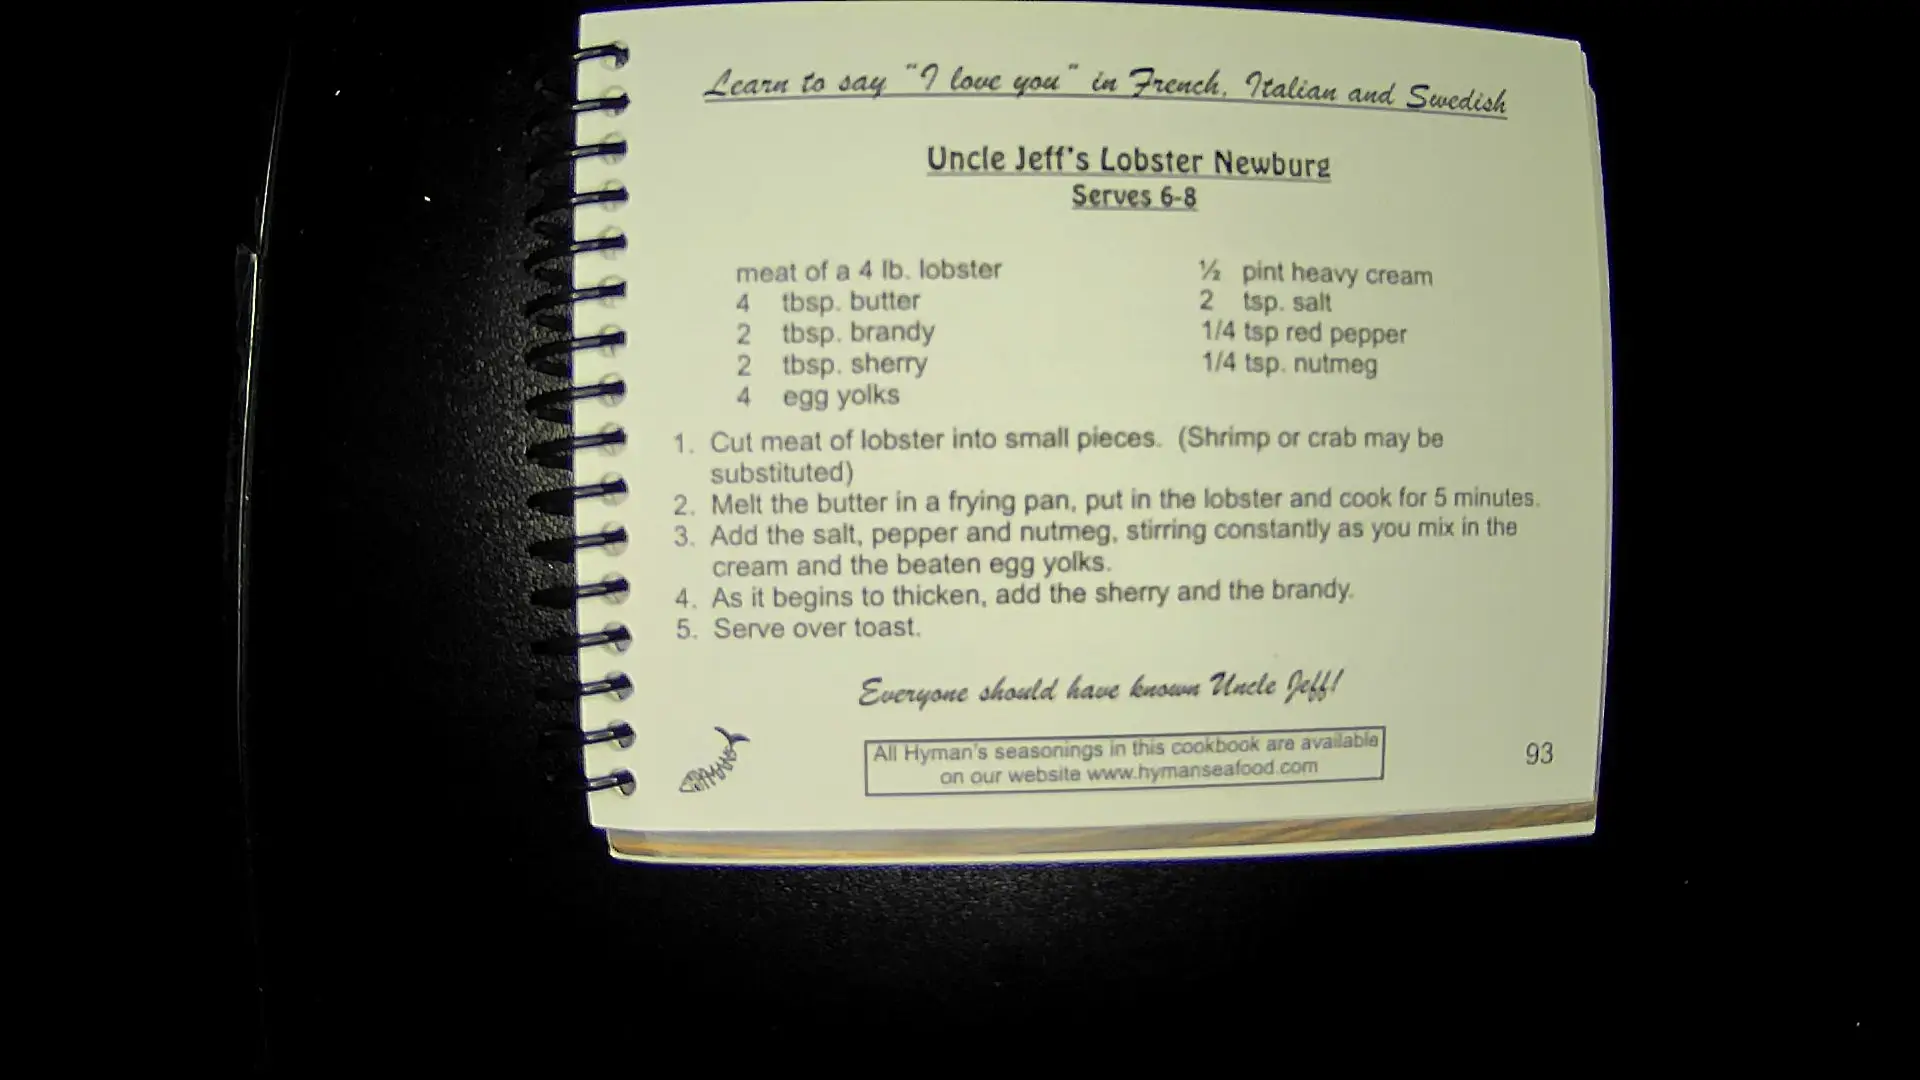 Learn to say "I love you" in French, Italian and Swedish
Uncle Jeff's Lobster Newburg
Serves 6-8
meat of a 4 lb. lobster
4 tbsp. butter
2 tbsp. brandy
2 tbsp. sherry
4 egg yolks
½ pint heavy cream
2 tsp. salt
1/4 tsp red pepper
1/4 tsp. nutmeg
1. Cut meat of lobster into small pieces. (Shrimp or crab may be
substituted)
2. Melt the butter in a frying pan, put in the lobster and cook for 5 minutes.
3. Add the salt, pepper and nutmeg, stirring constantly as you mix in the
cream and the beaten egg yolks.
4. As it begins to thicken, add the sherry and the brandy.
5. Serve over toast.
Everyone should have known Uncle Jeff!
All Hyman's seasonings in this cookbook are available
on our website www.hymanseafood.com
93